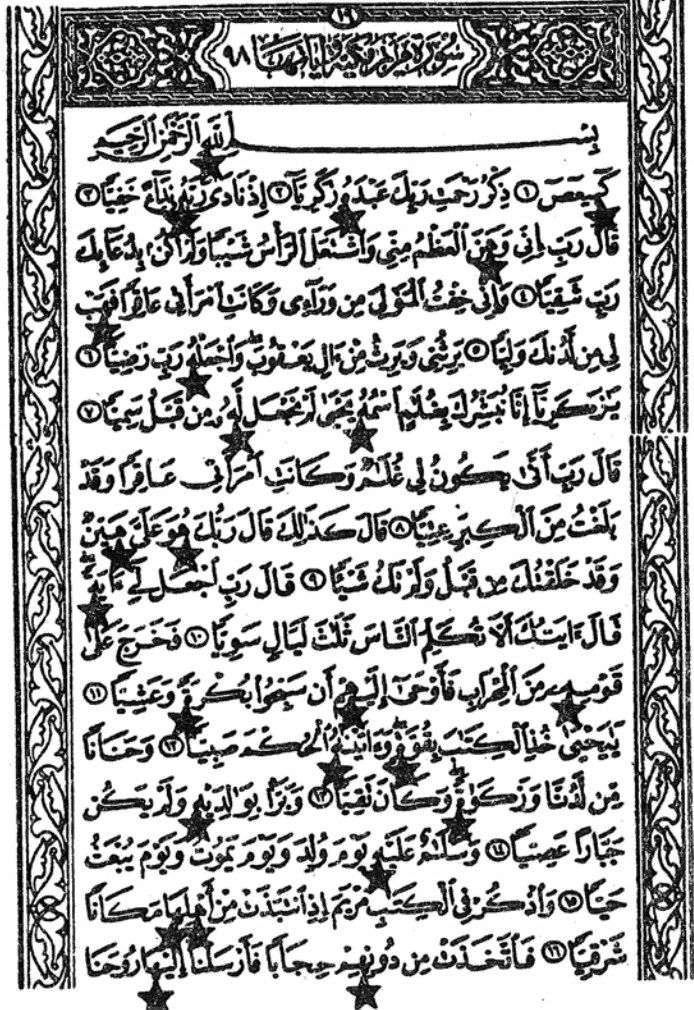 ١٩
سُورَةُ مَرْيَمَ مَكِّيَّةٌ وَآيَاتُهَا ٩٨
بِسْمِ اللَّهِ الرَّحْمَٰنِ الرَّحِيمِ
كٓهيعٓصٓ ١ ذِكْرُ رَحْمَتِ رَبِّكَ عَبْدَهُۥ زَكَرِيَّآ ٢ إِذْ نَادَىٰ رَبَّهُۥ نِدَآءً خَفِيًّا ٣
قَالَ رَبِّ إِنِّى وَهَنَ ٱلْعَظْمُ مِنِّى وَٱشْتَعَلَ ٱلرَّأْسُ شَيْبًا وَلَمْ أَكُنۢ بِدُعَآئِكَ
رَبِّ شَقِيًّا ٤ وَإِنِّى خِفْتُ ٱلْمَوَٰلِىَ مِن وَرَآءِى وَكَانَتِ ٱمْرَأَتِى عَاقِرًا فَهَبْ
لِى مِن لَّدُنكَ وَلِيًّا ٥ يَرِثُنِى وَيَرِثُ مِنْ ءَالِ يَعْقُوبَ ۖ وَٱجْعَلْهُ رَبِّ رَضِيًّا ٦
يَٰزَكَرِيَّآ إِنَّا نُبَشِّرُكَ بِغُلَٰمٍ ٱسْمُهُۥ يَحْيَىٰ لَمْ نَجْعَل لَّهُۥ مِن قَبْلُ سَمِيًّا ٧
قَالَ رَبِّ أَنَّىٰ يَكُونُ لِى غُلَٰمٌ وَكَانَتِ ٱمْرَأَتِى عَاقِرًا وَقَدْ
بَلَغْتُ مِنَ ٱلْكِبَرِ عِتِيًّا ٨ قَالَ كَذَٰلِكَ قَالَ رَبُّكَ هُوَ عَلَىَّ هَيِّنٌ
وَقَدْ خَلَقْتُكَ مِن قَبْلُ وَلَمْ تَكُ شَيْـًٔا ٩ قَالَ رَبِّ ٱجْعَل لِّىٓ ءَايَةً ۚ
قَالَ ءَايَتُكَ أَلَّا تُكَلِّمَ ٱلنَّاسَ ثَلَٰثَ لَيَالٍ سَوِيًّا ١٠ فَخَرَجَ عَلَىٰ
قَوْمِهِۦ مِنَ ٱلْمِحْرَابِ فَأَوْحَىٰٓ إِلَيْهِمْ أَن سَبِّحُوا۟ بُكْرَةً وَعَشِيًّا ١١
يَٰيَحْيَىٰ خُذِ ٱلْكِتَٰبَ بِقُوَّةٍ ۖ وَءَاتَيْنَٰهُ ٱلْحُكْمَ صَبِيًّا ١٢ وَحَنَانًا
مِّن لَّدُنَّا وَزَكَوٰةً ۖ وَكَانَ تَقِيًّا ١٣ وَبَرًّۢا بِوَٰلِدَيْهِ وَلَمْ يَكُن
جَبَّارًا عَصِيًّا ١٤ وَسَلَٰمٌ عَلَيْهِ يَوْمَ وُلِدَ وَيَوْمَ يَمُوتُ وَيَوْمَ يُبْعَثُ
حَيًّا ١٥ وَٱذْكُرْ فِى ٱلْكِتَٰبِ مَرْيَمَ إِذِ ٱنتَبَذَتْ مِنْ أَهْلِهَا مَكَانًا
شَرْقِيًّا ١٦ فَٱتَّخَذَتْ مِن دُونِهِمْ حِجَابًا فَأَرْسَلْنَآ إِلَيْهَا رُوحَنَا